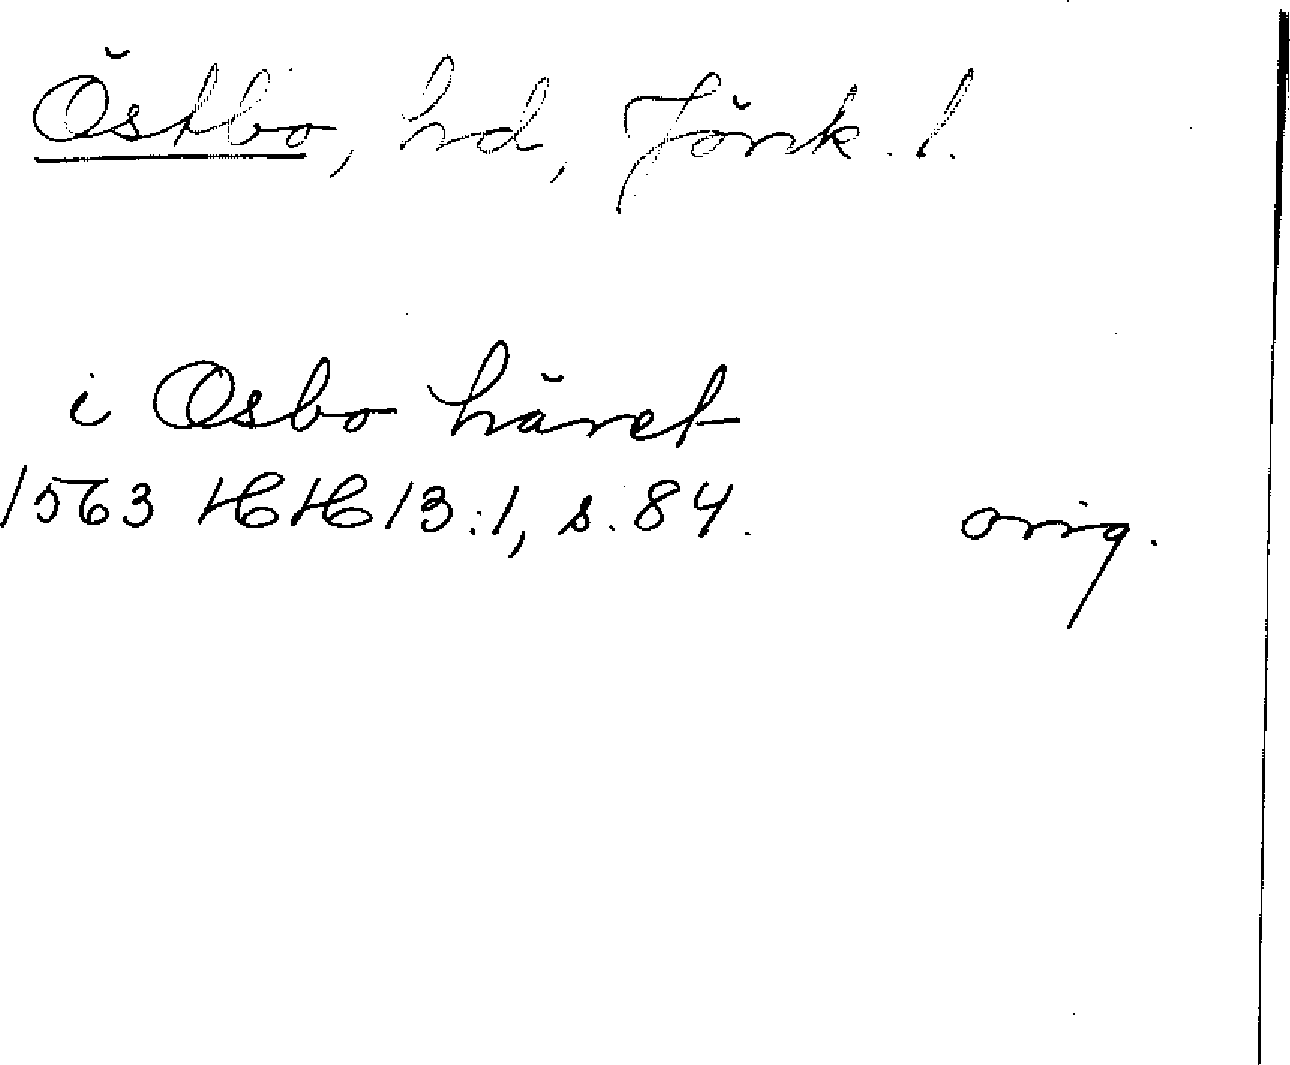 Östbo, hd, Jönk. l.
i Osbo häret
1563 HH 13:1, s. 84. orig.